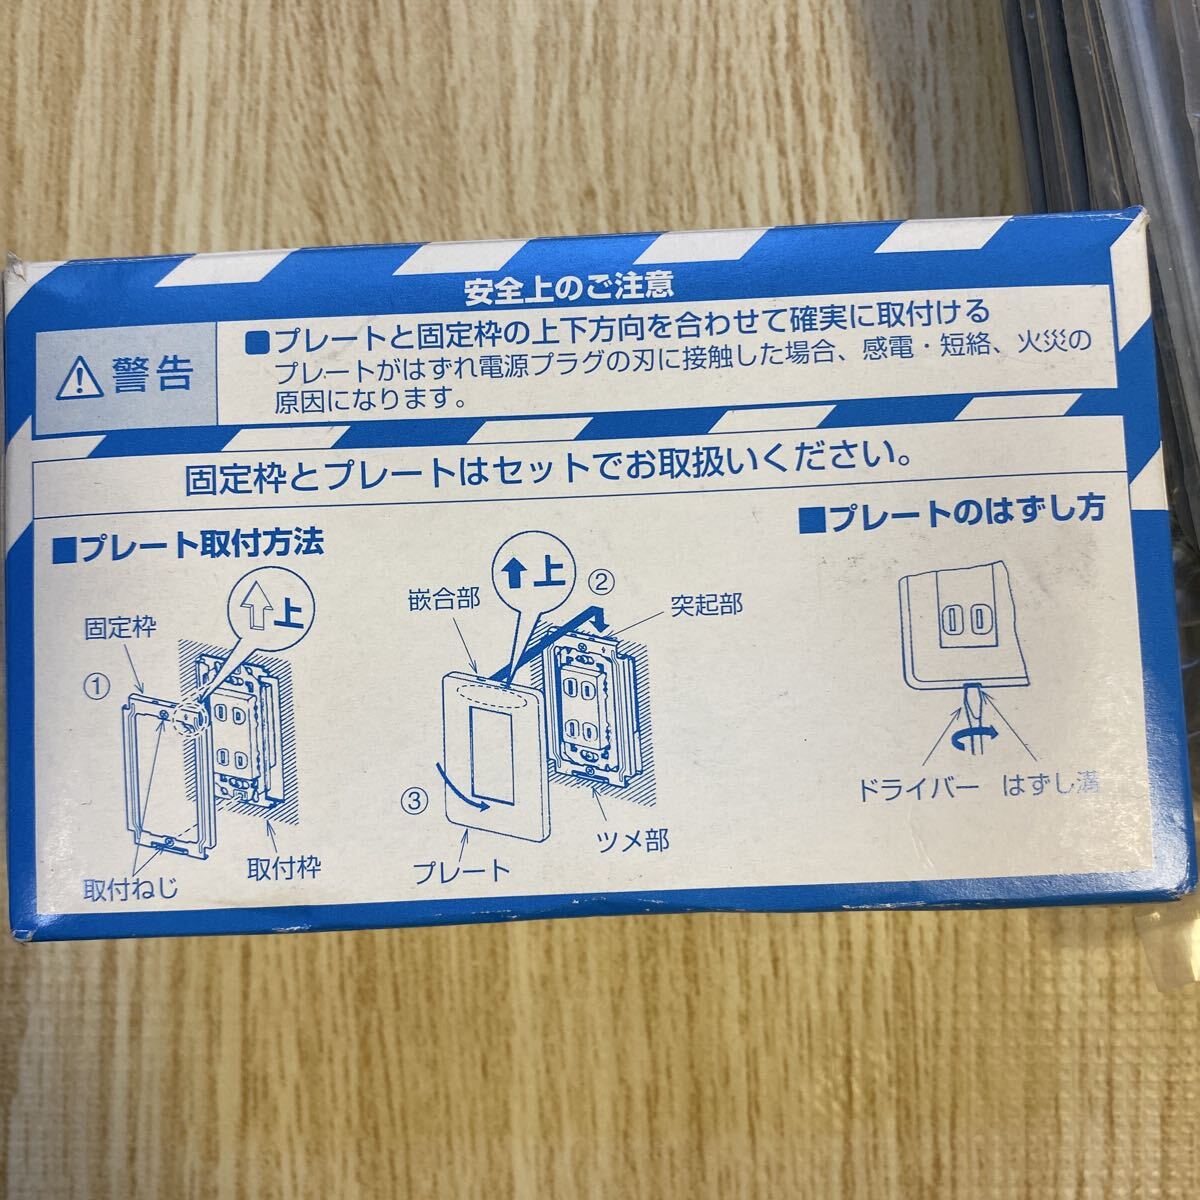 安全上のご注意
警告
■プレートと固定枠の上下方向を合わせて確実に取付ける
プレートがはずれ電源プラグの刃に接触した場合、感電・短絡、火災の
原因になります。
固定枠とプレートはセットでお取扱いください。
■プレート取付方法
上
固定枠
①
取付枠
取付ねじ
上
嵌合部
②
突起部
③
ツメ部
プレート
■プレートのはずし方
ドライバー
はずし溝